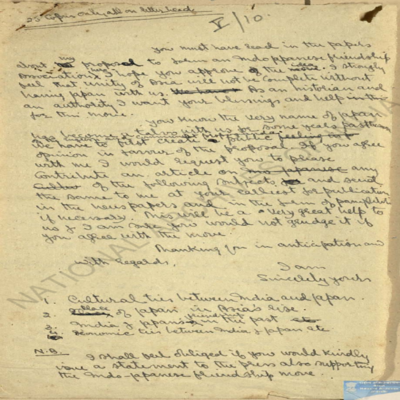 25 copies only all on letter heads
V/10.
you must have read in the papers
about proposal to form an Indo Japanese friendship
association. I hope you approve of the I strongly
feel that unity of Asia will not be complete without
having Japan with us. As an historian and
an authority I want your blessings and help
for this move.
you know the very name of Japan
We have to first create public
opinion in favour of the proposal. If you agree
with me I would request you to please
contribute an article on any
of the following subjects and send
the same to me at your earliest for publication
in the newspapers and in the form of pamphlet
if necessary. This will be a very great help to
us & I am sure you would not grudge it if
you agree with the move.
Thanking you in anticipation and
with regards,
I am
Sincerely yours
1. Cultural ties between India and Japan.
2. of Japan in Asia's rise.
3. India & Japan in past
4. Economic ties between India & Japan etc
N.B. I shall feel obliged if you would kindly
issue a statement to the press also supporting
the Indo-Japanese friendship move.
NATIONAL